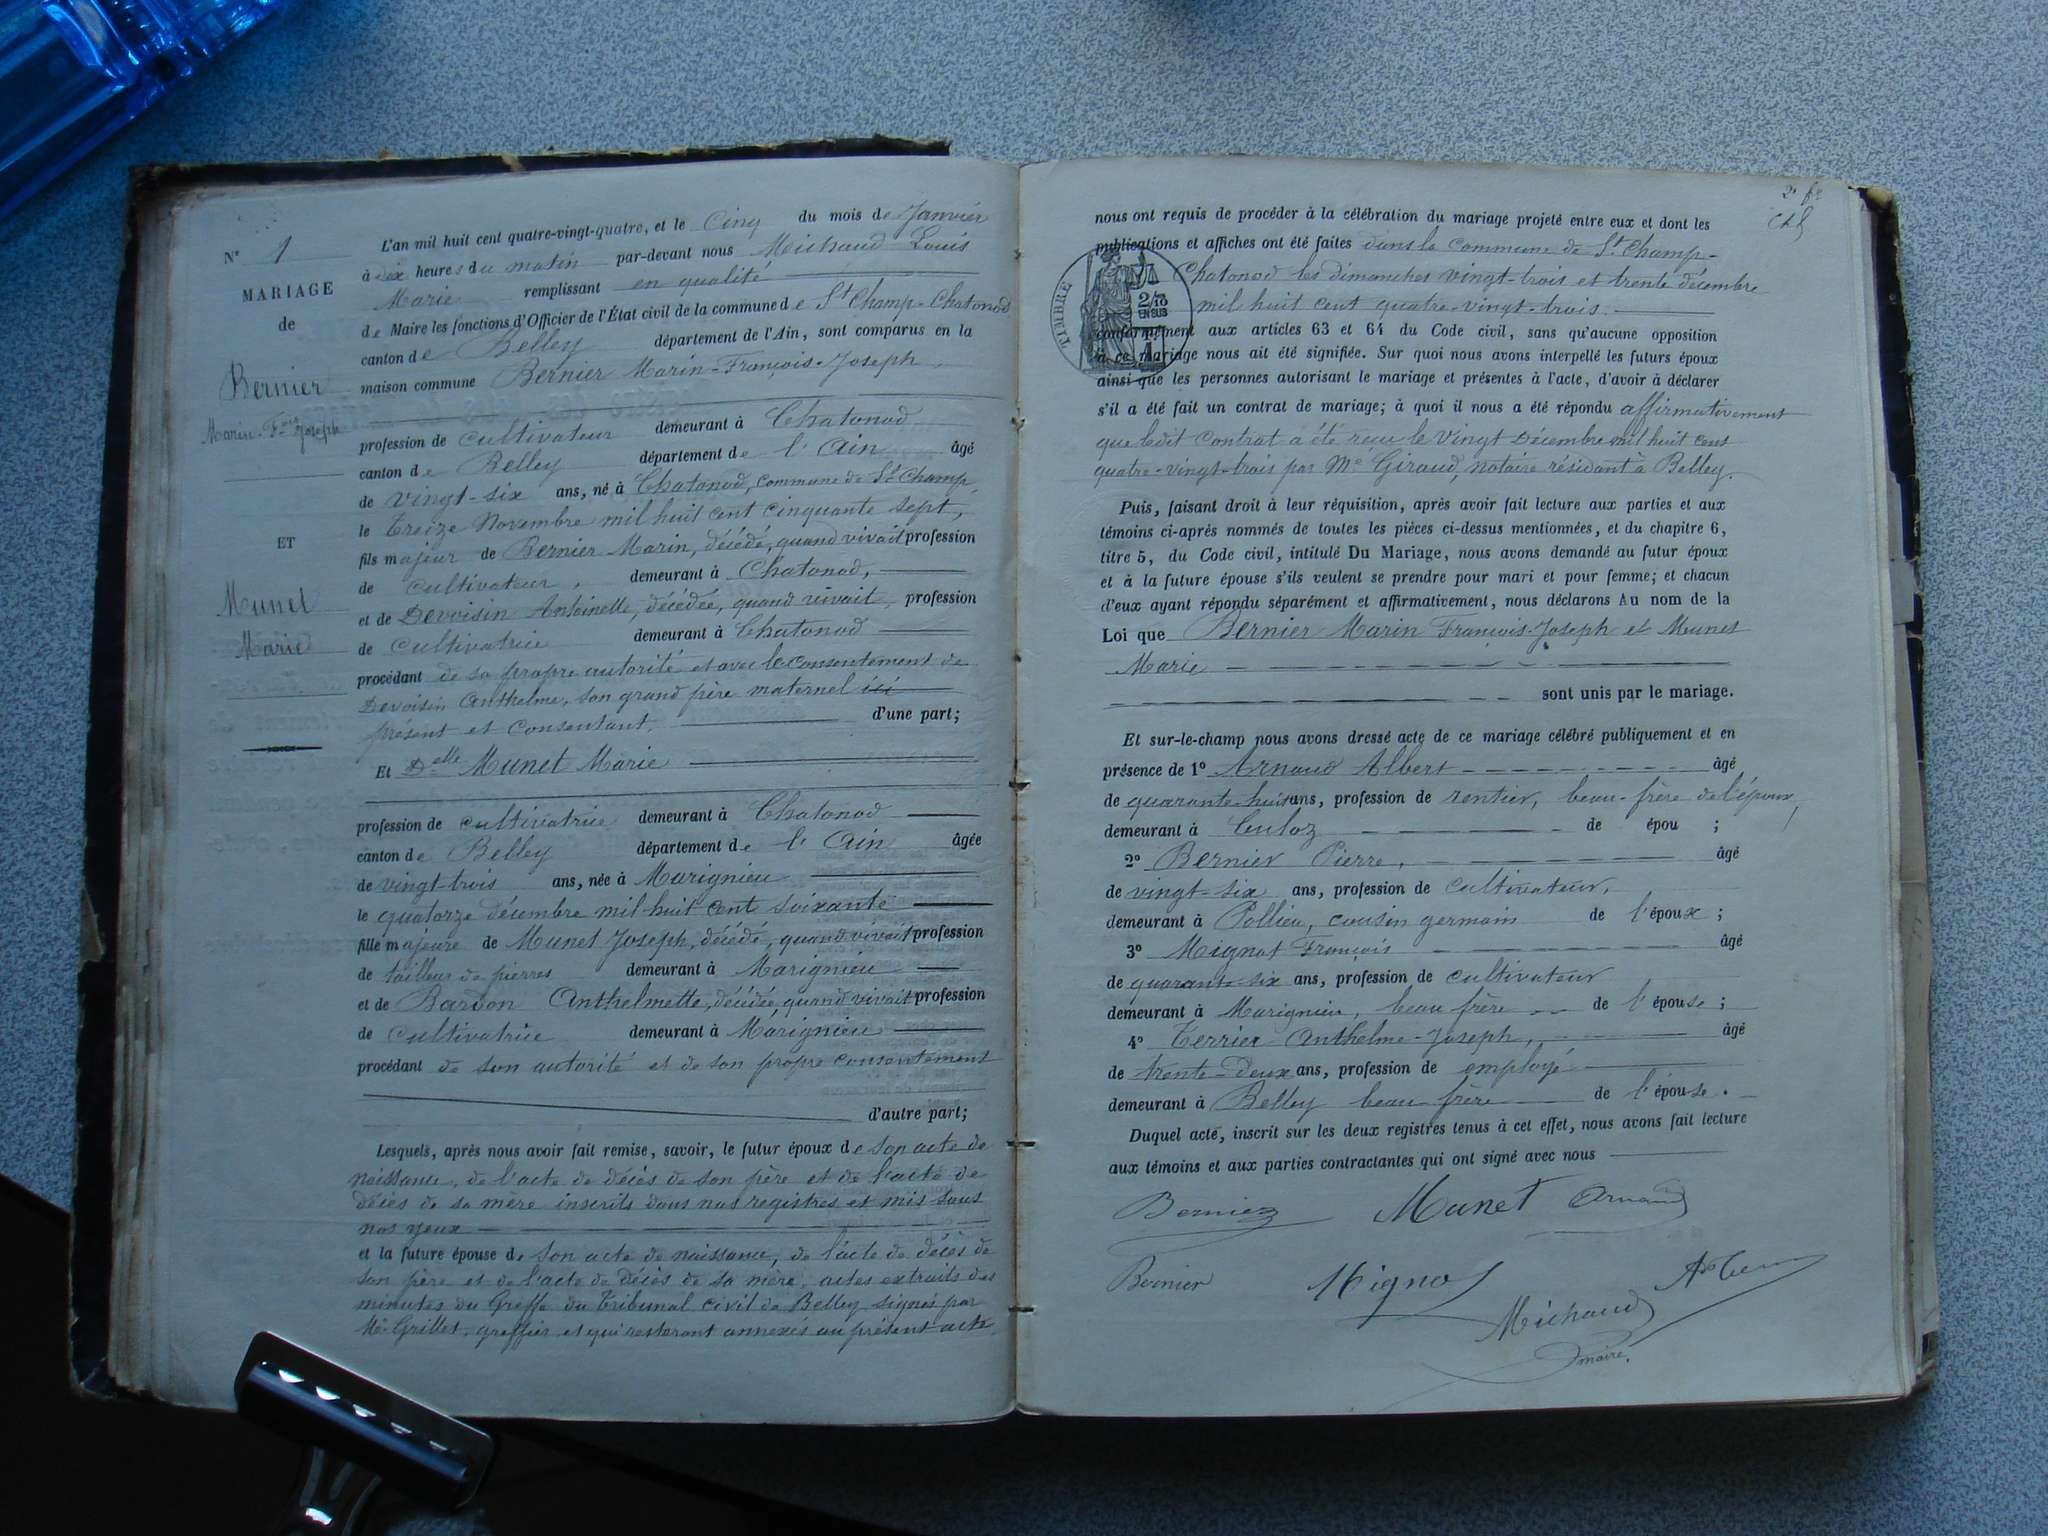 N° 1
MARIAGE
de
Bernier
Marin-Fois Joseph
ET
Munet
Marie
L'an mil huit cent quatre-vingt-quatre, et le cinq du mois de Janvier
à dix heures du matin par-devant nous Michaud Louis
Marie remplissant en qualité
de Maire les fonctions d'Officier de l'État civil de la commune de St Champ-Chatonod
canton de Belley département de l'Ain, sont comparus en la
maison commune Bernier Marin-François-Joseph
profession de cultivateur demeurant à Chatonod
canton de Belley département de l'Ain âgé
de vingt-six ans, né à Chatonod, commune de St Champ,
le treize Novembre mil huit cent cinquante sept,
fils majeur de Bernier Marin, décédé, quand vivait profession
de cultivateur, demeurant à Chatonod,
et de Devoisin Antoinette, décédée, quand vivait profession
de cultivatrice demeurant à Chatonod
procédant de sa propre autorité et avec le consentement de
Devoisin Anthelme, son grand père maternel ici
présent et consentant. d'une part;
Et Delle Munet Marie
profession de cultivatrice demeurant à Chatonod
canton de Belley département de l'Ain âgée
de vingt-trois ans, née à Marignieu
le quatorze décembre mil huit cent soixante
fille majeure de Munet Joseph, décédé, quand vivait profession
de tailleur de pierres demeurant à Marignieu
et de Bardon Anthelmette, décédée quand vivait profession
de cultivatrice demeurant à Marignieu
procédant de son autorité et de son propre consentement
d'autre part;
Lesquels, après nous avoir fait remise, savoir, le futur époux de son acte de
naissance, de l'acte de décès de son père et de l'acte de
décès de sa mère inscrits dans nos registres et mis sous
nos yeux
et la future épouse de son acte de naissance, de l'acte de décès de
son père et de l'acte de décès de sa mère, actes extraits des
minutes du Greffe du Tribunal civil de Belley signés par
Me Grillet, greffier et qui resteront annexés au présent acte
2e
nous ont requis de procéder à la célébration du mariage projeté entre eux et dont les
publications et affiches ont été faites dans la commune de St Champ-
Chatonod les dimanches vingt-trois et trente décembre
mil huit cent quatre-vingt-trois.
TIMBRE
2/10
EN SUS
conformément aux articles 63 et 64 du Code civil, sans qu'aucune opposition
à ce mariage nous ait été signifiée. Sur quoi nous avons interpellé les futurs époux
ainsi que les personnes autorisant le mariage et présentes à l'acte, d'avoir à déclarer
s'il a été fait un contrat de mariage; à quoi il nous a été répondu affirmativement
que ledit contrat a été reçu le vingt Décembre mil huit cent
quatre-vingt-trois par Me Giraud, notaire résidant à Belley.
Puis, faisant droit à leur réquisition, après avoir fait lecture aux parties et aux
témoins ci-après nommés de toutes les pièces ci-dessus mentionnées, et du chapitre 6,
titre 5, du Code civil, intitulé Du Mariage, nous avons demandé au futur époux
et à la future épouse s'ils veulent se prendre pour mari et pour femme; et chacun
d'eux ayant répondu séparément et affirmativement, nous déclarons Au nom de la
Loi que Bernier Marin François-Joseph et Munet
Marie
sont unis par le mariage.
Et sur-le-champ nous avons dressé acte de ce mariage célébré publiquement et en
présence de 1° Arnaud Albert âgé
de quarante-huit ans, profession de rentier, beau-frère de l'époux,
demeurant à Culoz de épou ;
2° Bernier Pierre, âgé
de vingt-six ans, profession de cultivateur,
demeurant à Pollieu, cousin germain de l'époux ;
3° Mignot François âgé
de quarante-six ans, profession de cultivateur
demeurant à Marignieu, beau frère de l'épouse ;
4° Terrier Anthelme-Joseph, âgé
de trente-deux ans, profession de employé
demeurant à Belley beau-frère de l'épouse.
Duquel acte, inscrit sur les deux registres tenus à cet effet, nous avons fait lecture
aux témoins et aux parties contractantes qui ont signé avec nous
Bernier Munet Arnaud
Bernier Mignot
Michaud
maire.